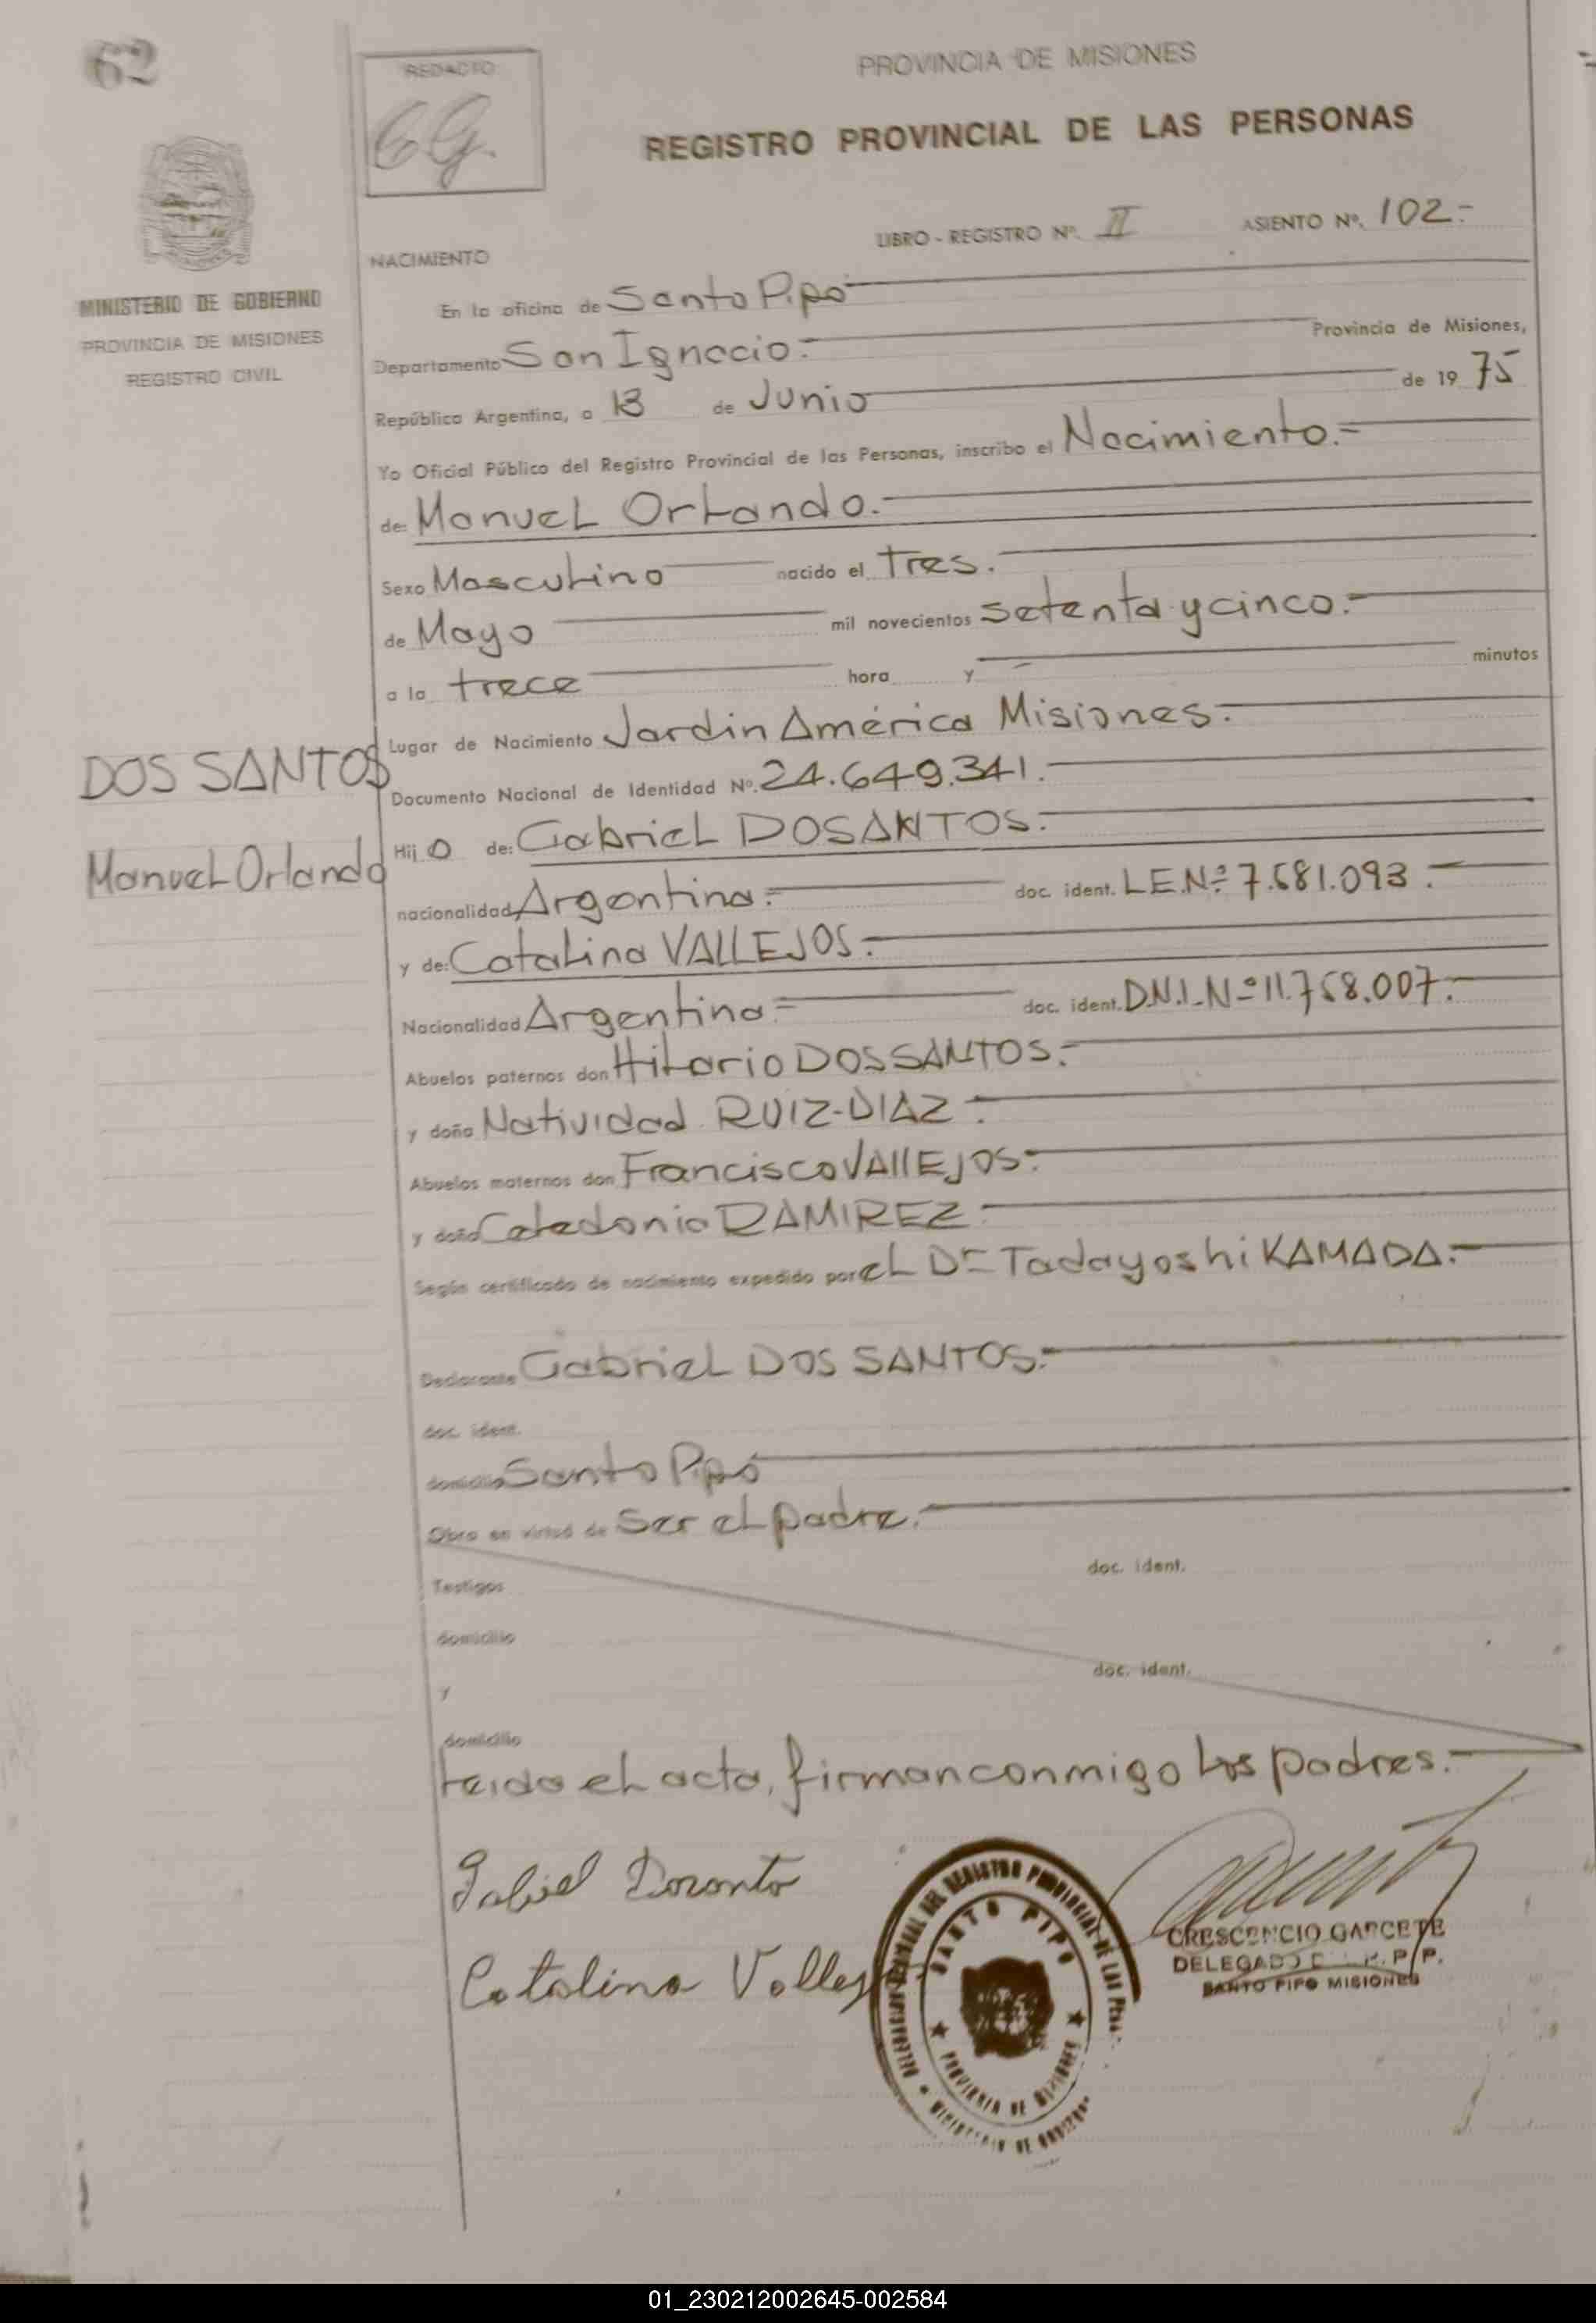 62
REDACTO
GG.
PROVINCIA DE MISIONES
REGISTRO PROVINCIAL DE LAS PERSONAS
LIBRO - REGISTRO Nº. II ASIENTO Nº. 102.-
MINISTERIO DE GOBIERNO
PROVINCIA DE MISIONES
REGISTRO CIVIL
NACIMIENTO
En la oficina de Santo Pipó
Departamento San Ignacio.- Provincia de Misiones,
República Argentina, a 13 de Junio de 19 75
Yo Oficial Público del Registro Provincial de las Personas, inscribo el Nacimiento.-
de: Manuel Orlando.-
Sexo Masculino nacido el Tres.
de Mayo mil novecientos setenta y cinco.-
a la trece hora y minutos
Lugar de Nacimiento Jardín América Misiones.-
DOS SANTOS
Manuel Orlando
Documento Nacional de Identidad Nº. 24.649.341.-
Hij o de: Gabriel DOSANTOS.-
nacionalidad Argentina.- doc. ident. L.E.Nº 7.681.093.-
y de: Catalina VALLEJOS.-
Nacionalidad Argentina.- doc. ident. D.N.I.Nº 11.768.007.-
Abuelos paternos don Hilario DOS SANTOS.-
y doña Natividad RUIZ-DIAZ.-
Abuelos maternos don Francisco VALLEJOS.-
y doña Celedonia RAMIREZ.-
Según certificado de nacimiento expedido por el Dr Tadayoshi KAMADA.-
Declarante Gabriel DOS SANTOS.-
doc. ident.
domicilio Santo Pipó
Obra en virtud de Ser el padre.-
doc. ident.
Testigos
domicilio
doc. ident.
y
domicilio
leida el acta, firman conmigo los padres.-
Gabriel Dosanto
Catalina Vallejo
SANTO PIPO
PROVINCIA DE MISIONES
MINISTERIO DE GOBIERNO
CRESCENCIO GARCETE
DELEGADO R. P. P.
SANTO PIPO MISIONES
01_230212002645-002584